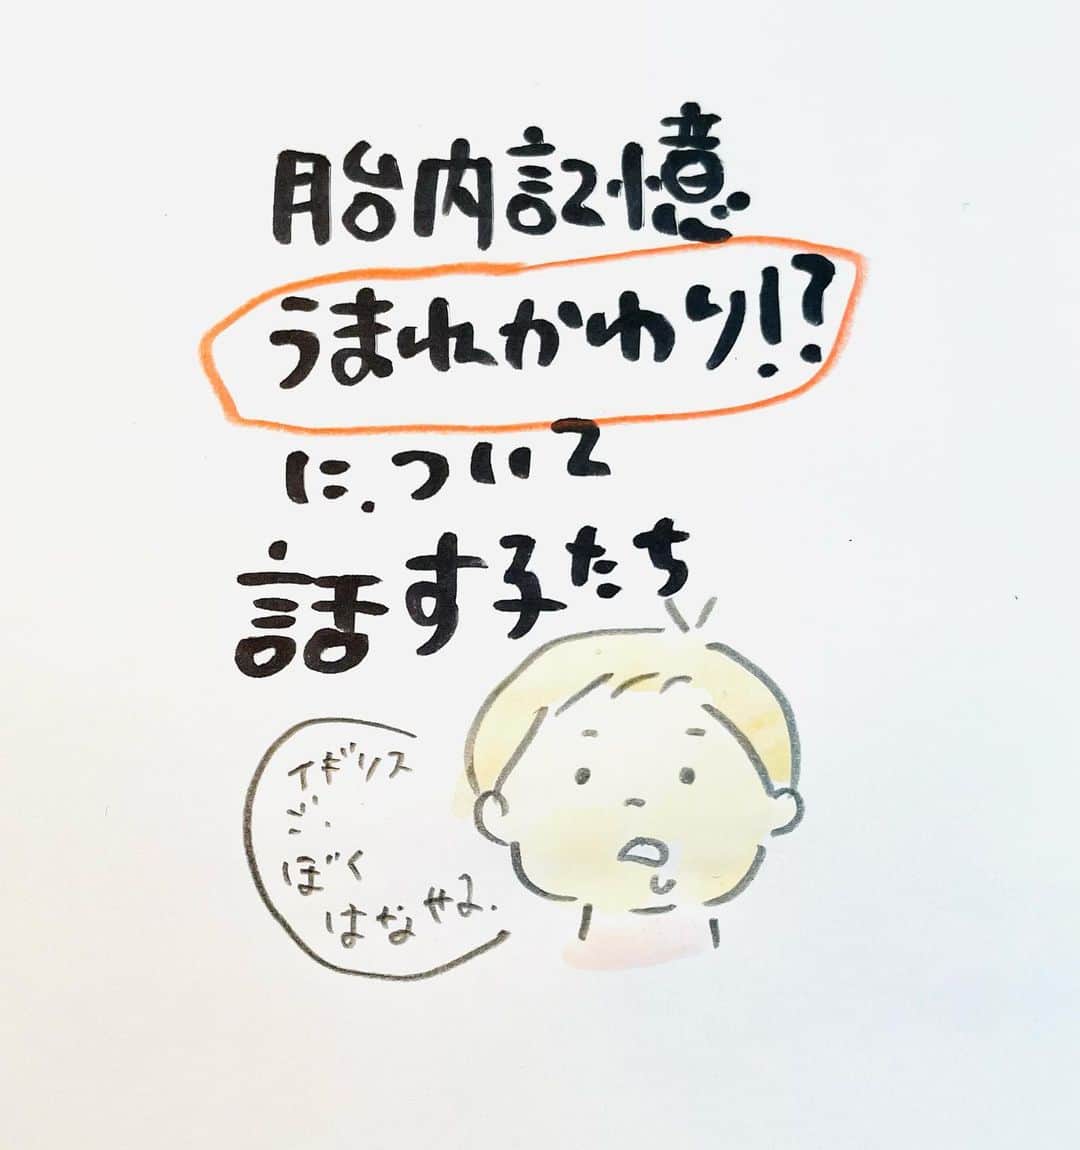 胎内記憶
うまれかわり!?
について
話す子たち
イギリス
ご.
ぼく
はなせる.